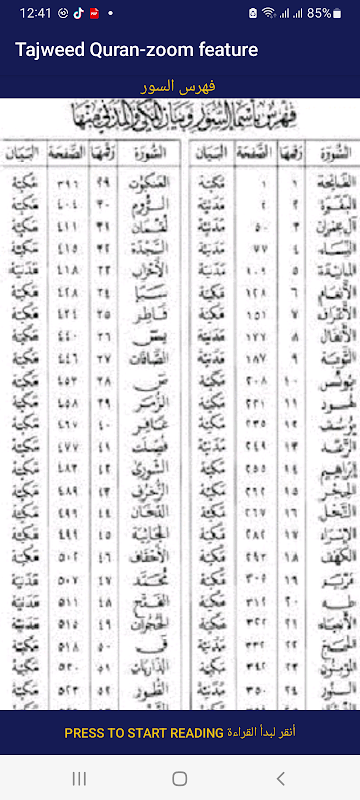 12:41 85%
Tajweed Quran-zoom feature
فهرس السور
فهرس بأسماء السور وبيان المكي والمدني منها
السورة رقمها الصفحة البيان السورة رقمها الصفحة البيان
الفاتحة ١ ١ مكية العنكبوت ٢٩ ٣٩٦ مكية
البقرة ٢ ٢ مدنية الروم ٣٠ ٤٠٤ مكية
آل عمران ٣ ٥٠ مدنية لقمان ٣١ ٤١١ مكية
النساء ٤ ٧٧ مدنية السجدة ٣٢ ٤١٥ مكية
المائدة ٥ مدنية الأحزاب ٣٣ ٤١٨ مدنية
الأنعام ٦ ١٢٨ مكية سبأ ٣٤ ٤٢٨ مكية
الأعراف ٧ ١٥١ مكية فاطر ٣٥ ٤٣٤ مكية
الأنفال ٨ ١٧٧ مدنية يس ٣٦ ٤٤٠ مكية
التوبة ٩ ١٨٧ مدنية الصافات ٣٧ ٤٤٦ مكية
يونس ١٠ ٢٠٨ مكية ص ٣٨ ٤٥٣ مكية
هود ١١ ٢٢١ مكية الزمر ٣٩ ٤٥٨ مكية
يوسف ١٢ ٢٣٥ مكية غافر ٤٠ ٤٦٧ مكية
الرعد ١٣ ٢٤٩ مدنية فصلت ٤١ ٤٧٧ مكية
إبراهيم ١٤ ٢٥٥ مكية الشورى ٤٢ ٤٨٣ مكية
الحجر ١٥ ٢٦٢ مكية الزخرف ٤٣ ٤٨٩ مكية
النحل ١٦ ٢٦٧ مكية الدخان ٤٤ ٤٩٦ مكية
الإسراء ١٧ ٢٨٢ مكية الجاثية ٤٥ ٤٩٩ مكية
الكهف ١٨ ٢٩٣ مكية الأحقاف ٤٦ ٥٠٢ مكية
مريم ١٩ ٣٠٥ مكية محمد ٤٧ ٥٠٧ مدنية
طه ٢٠ ٣١٢ مكية الفتح ٤٨ ٥١١ مدنية
الأنبياء ٢١ ٣٢٢ مكية الحجرات ٤٩ ٥١٥ مدنية
الحج ٢٢ ٣٣٢ مدنية ق ٥٠ ٥١٨ مكية
المؤمنون ٢٣ ٣٤٢ مكية الذاريات ٥١ ٥٢٠ مكية
النور ٢٤ ٣٥٠ مدنية الطور ٥٢ ٥٢٣ مكية
PRESS TO START READING أنقر لبدأ القراءة